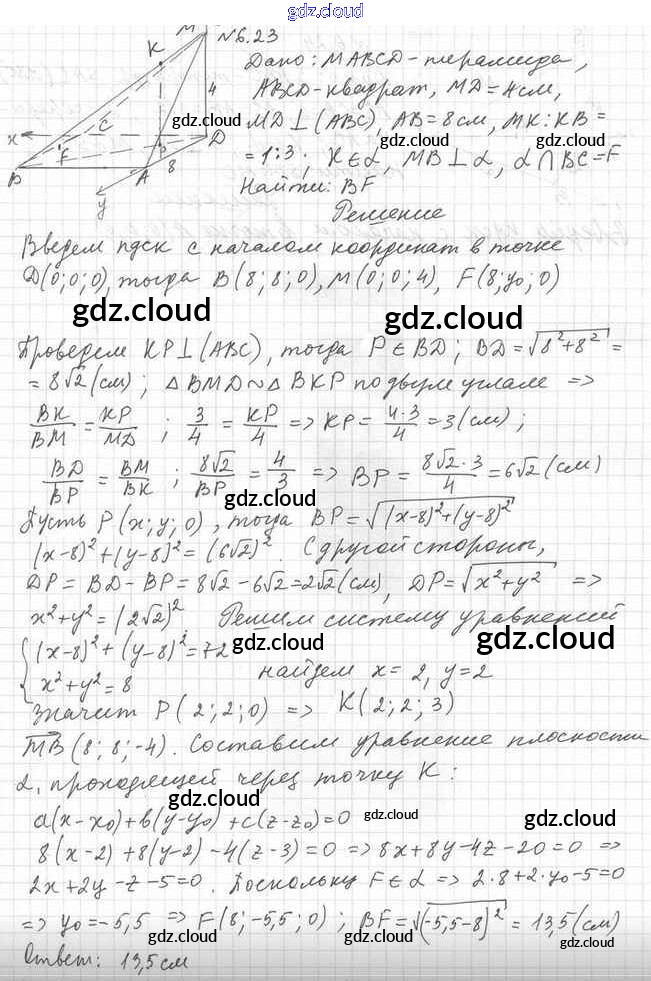 gdz.cloud
№6.23
Дано: MABCD - пирамида,
ABCD - квадрат, MD = 4 см,
MD ⊥ (ABC), AB = 8 см, MK : KB =
= 1:3; K ∈ α, MB ⊥ α, α ∩ BC = F
Найти: BF
M
K
4
x
C
F
P
D
B
A
8
y
gdz.cloud
gdz.cloud
Решение
Введем пдск с началом координат в точке
D(0; 0; 0), тогда B(8; 8; 0), M(0; 0; 4), F(8; y₀; 0)
gdz.cloud
gdz.cloud
Проведем KP ⊥ (ABC), тогда P ∈ BD; BD = √(8² + 8²) =
= 8√2 (см); △BMD ~ △BKP по двум углам =>
BK/BM = KP/MD ; 3/4 = KP/4 => KP = 4·3/4 = 3 (см);
BD/BP = BM/BK ; 8√2/BP = 4/3 => BP = 8√2·3/4 = 6√2 (см)
gdz.cloud
Пусть P(x; y; 0), тогда BP = √((x-8)² + (y-8)²)
(x-8)² + (y-8)² = (6√2)². С другой стороны,
gdz.cloud
DP = BD - BP = 8√2 - 6√2 = 2√2 (см), DP = √(x² + y²) =>
x² + y² = (2√2)². Решим систему уравнений
{ (x-8)² + (y-8)² = 72
x² + y² = 8
найдем x = 2, y = 2
gdz.cloud
gdz.cloud
Значит P(2; 2; 0) => K(2; 2; 3)
MB (8; 8; -4). Составим уравнение плоскости
α, проходящей через точку K:
gdz.cloud
a(x-x₀) + b(y-y₀) + c(z-z₀) = 0
gdz.cloud
gdz.cloud
8(x-2) + 8(y-2) - 4(z-3) = 0 => 8x + 8y - 4z - 20 = 0 =>
2x + 2y - z - 5 = 0. Поскольку F ∈ α => 2·8 + 2·y₀ - 5 = 0
gdz.cloud
=> y₀ = -5,5 => F(8; -5,5; 0); BF = √((-5,5-8)²) = 13,5 (см)
gdz.cloud
gdz.cloud
gdz.cloud
Ответ: 13,5 см